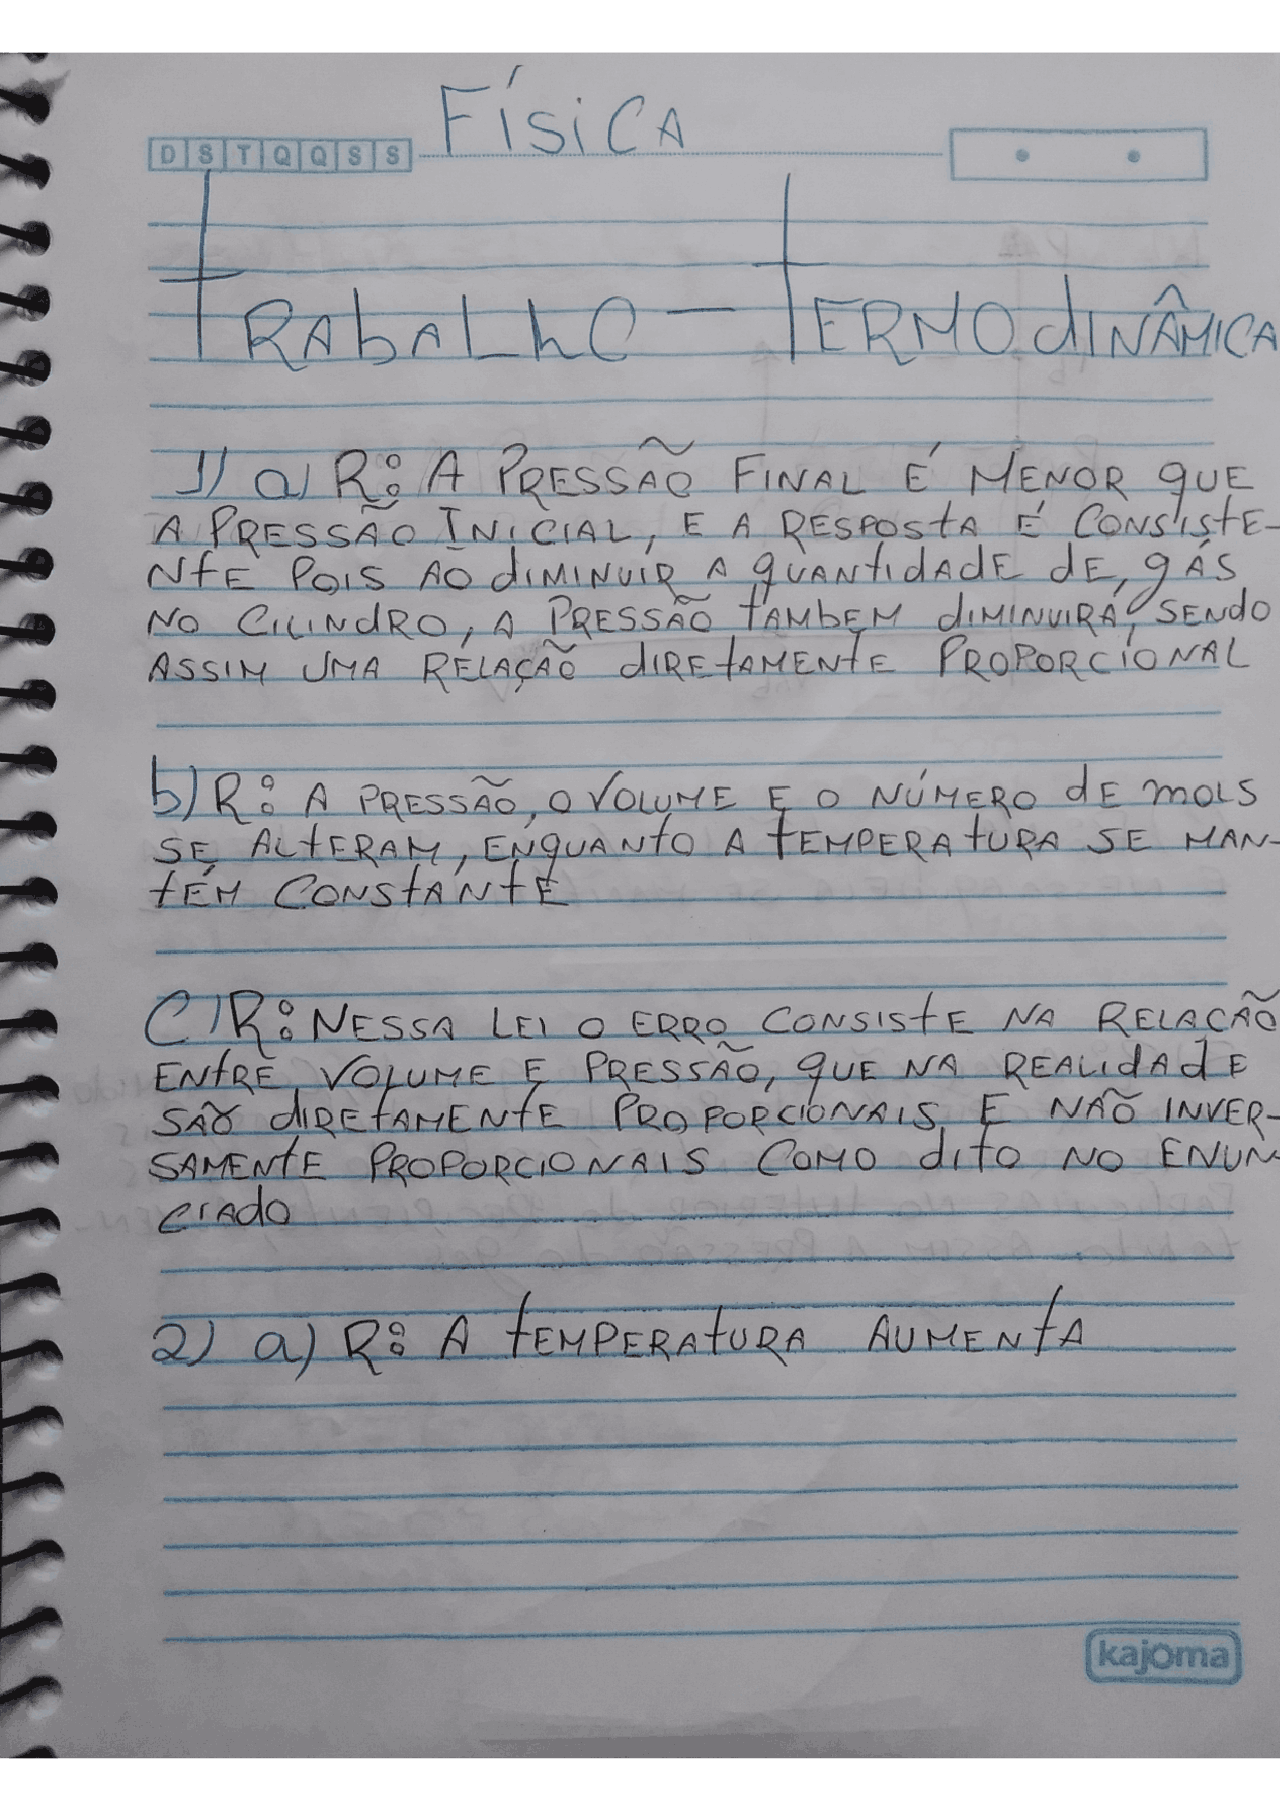 Física
D S T Q Q S S
Trabalho - Termodinâmica
1) a) R: A PRESSÃO FINAL É MENOR QUE
A PRESSÃO INICIAL, E A RESPOSTA É CONSISTE-
NTE POIS AO DIMINUIR A QUANTIDADE DE GÁS
NO CILINDRO, A PRESSÃO TAMBEM DIMINUIRÁ, SENDO
ASSIM UMA RELAÇÃO DIRETAMENTE PROPORCIONAL
b) R: A PRESSÃO, O VOLUME E O NÚMERO DE MOLS
SE ALTERAM, ENQUANTO A TEMPERATURA SE MAN-
TÉM CONSTANTE
C) R: NESSA LEI O ERRO CONSISTE NA RELAÇÃO
ENTRE VOLUME E PRESSÃO, QUE NA REALIDADE
SÃO DIRETAMENTE PROPORCIONAIS E NÃO INVER-
SAMENTE PROPORCIONAIS COMO DITO NO ENUN-
CIADO
2) a) R: A TEMPERATURA AUMENTA
kajoma